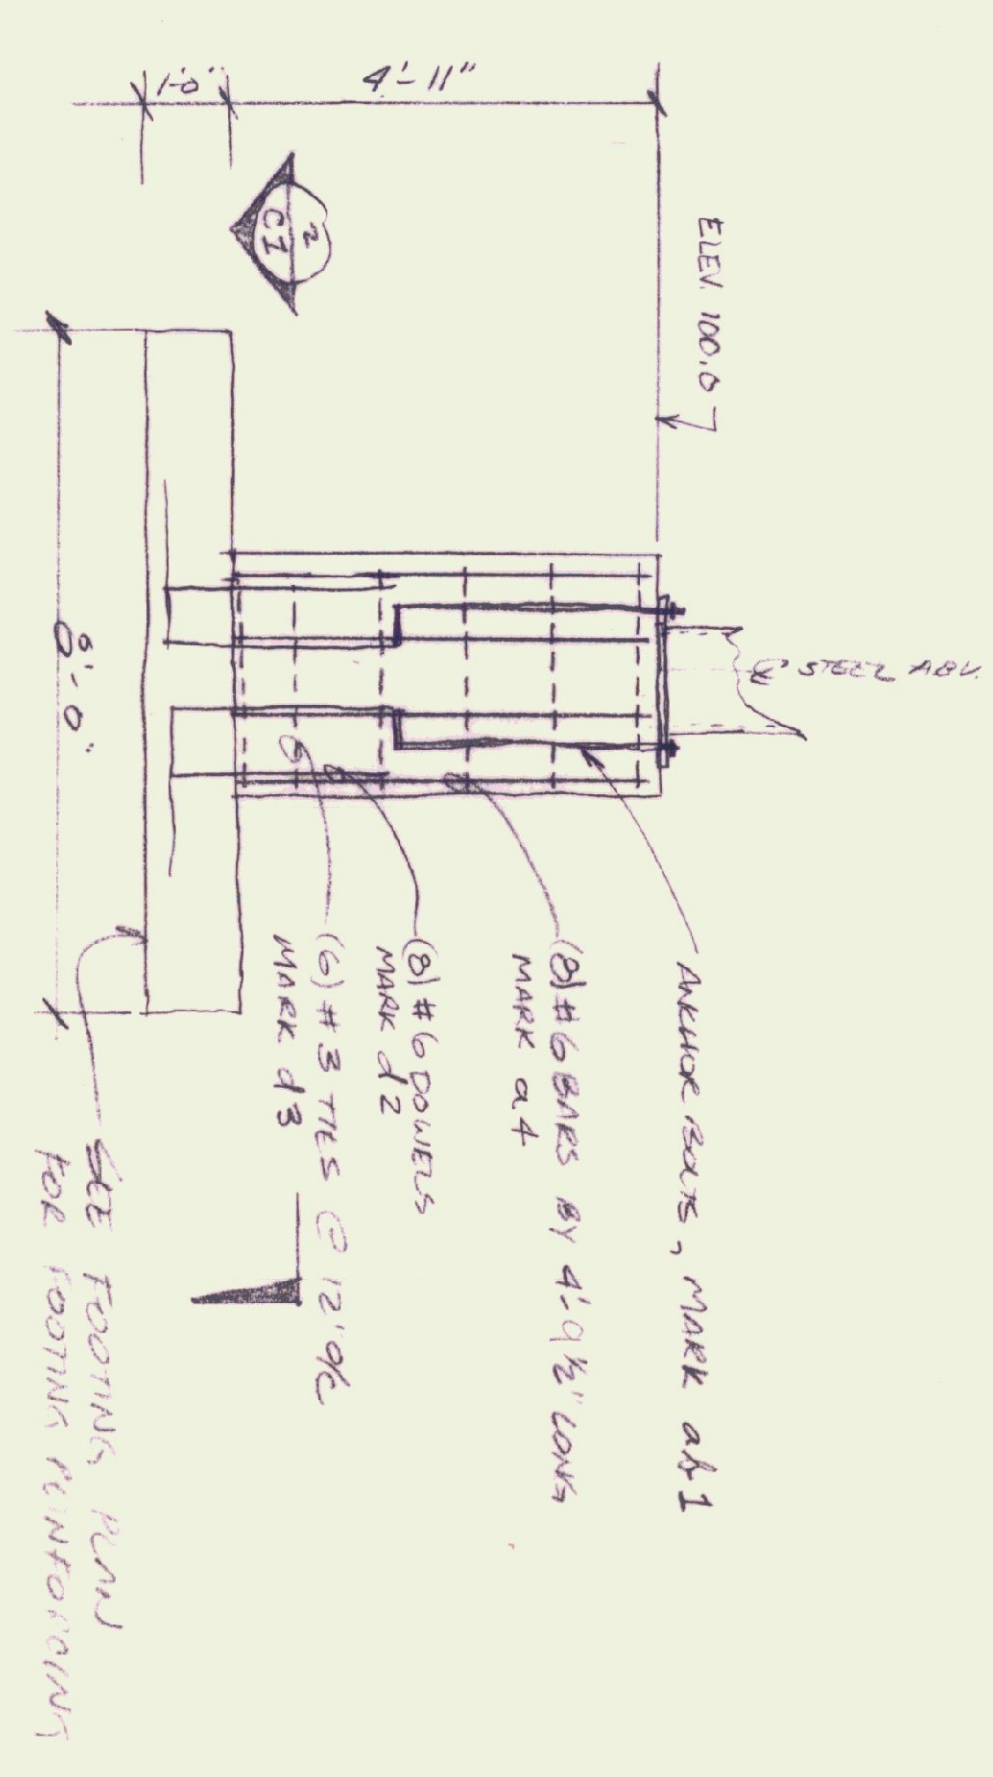 1'-0"
4'-11"
2
C1
ELEV. 100.0
℄ STEEL ABV.
ANKHOR BOLTS, MARK ab1
(8) #6 BARS BY 4'-9 1/2" LONG
MARK a4
(8) #6 DOWELS
MARK d2
(6) #3 TIES @ 12" O/C
MARK d3
8'-0"
SEE FOOTING PLAN
FOR FOOTING REINFORCING